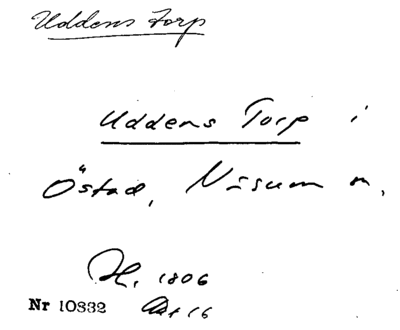 Uddens Torp
Uddens Torp i
Östad, Näsum s,
H. 1806
Nr 10832 Akt 16